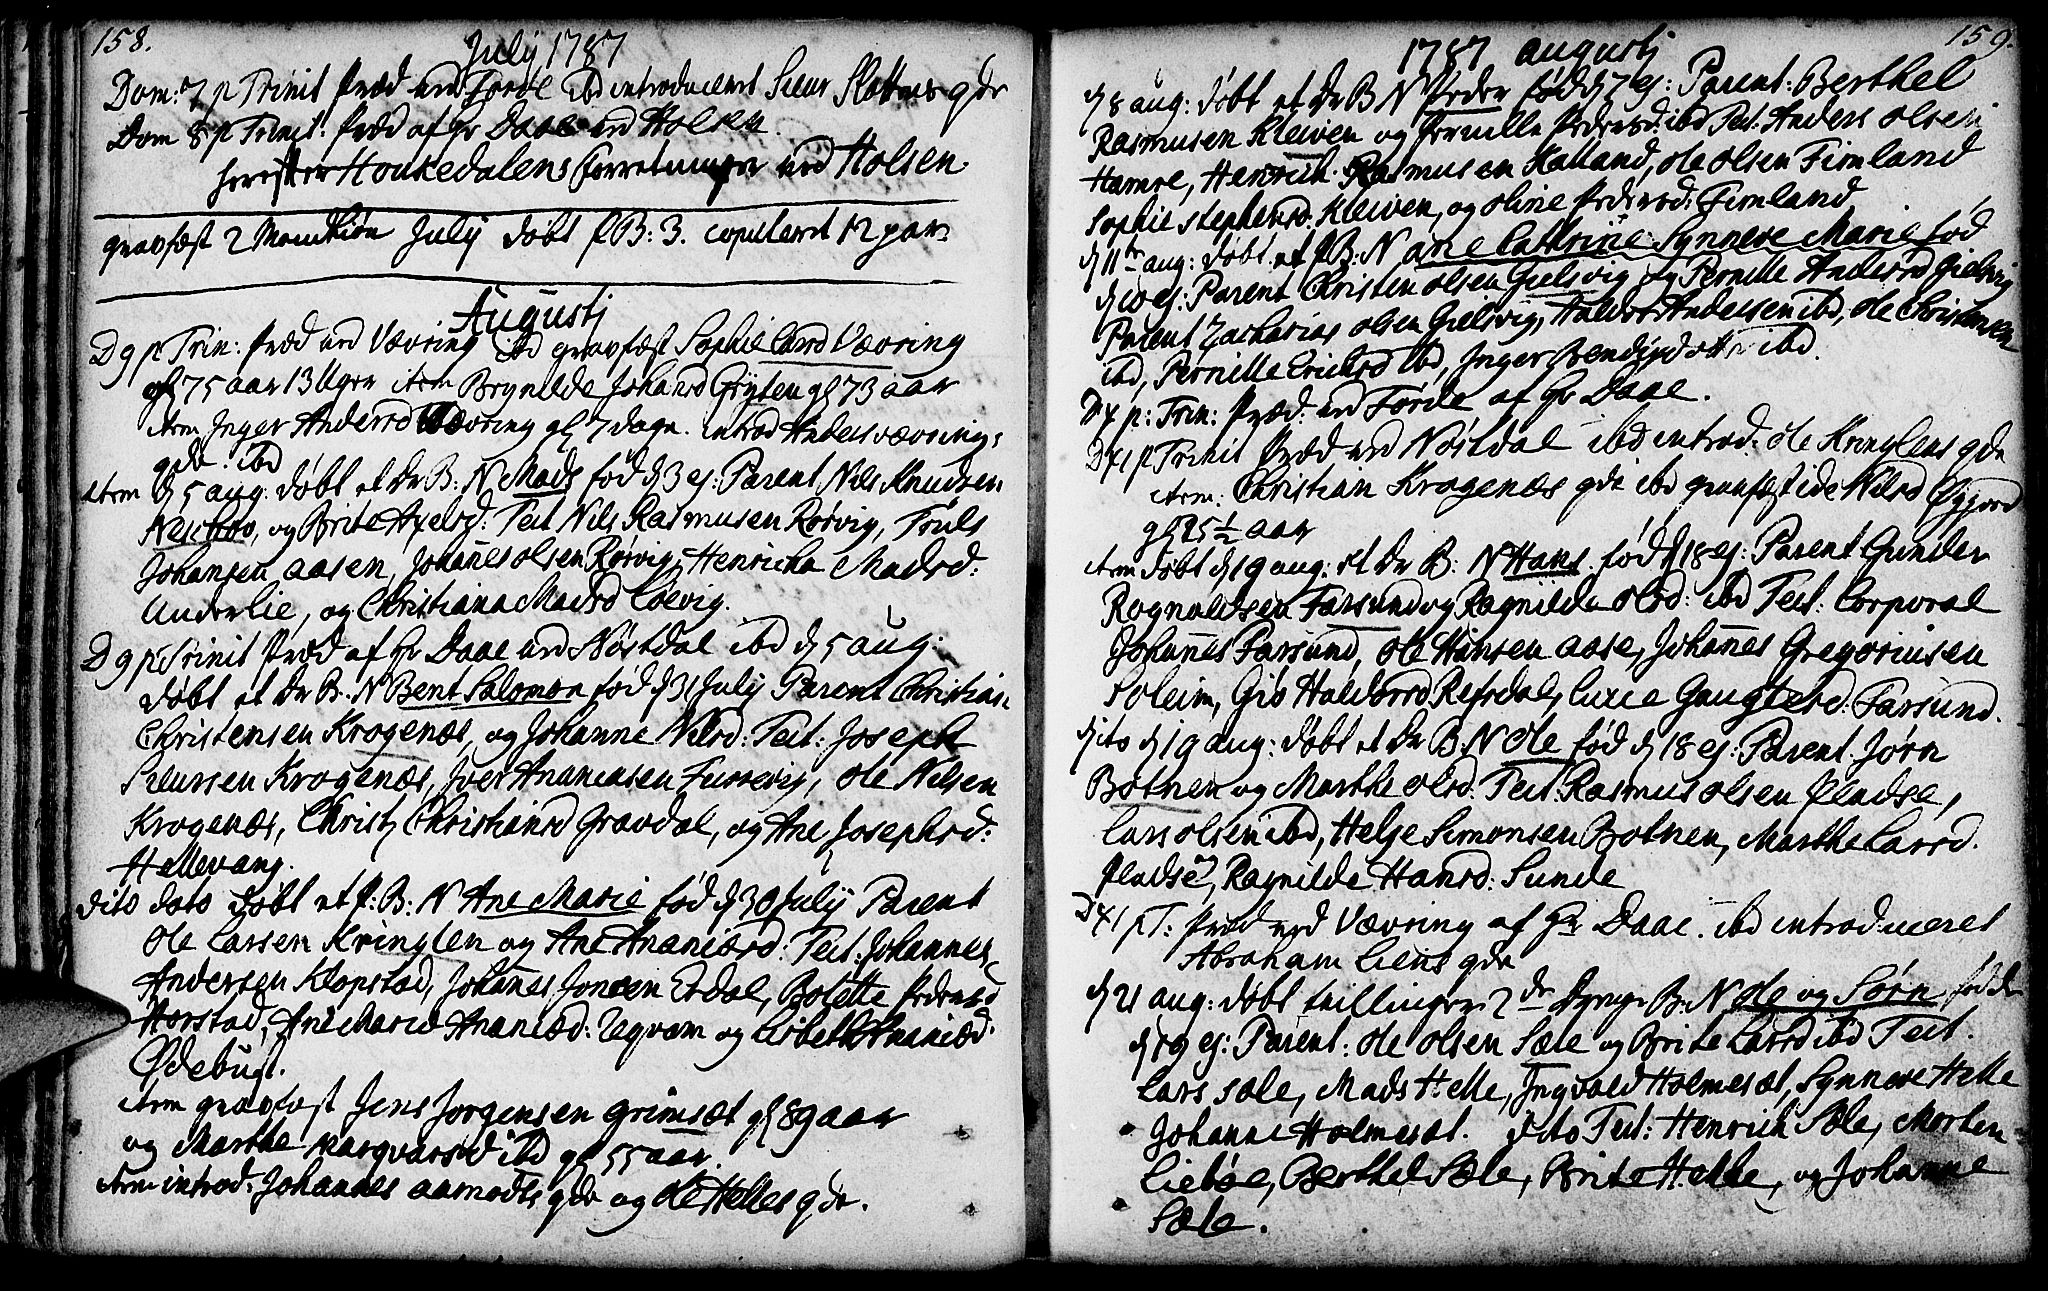 158.
July 1787
Dom: 7 p Trinit Præd ved Førde ibd introduceret Siur Slottens qde
Dom 8 p Trinit: Præd af Hr Daae ved Holsen.
Houkedalens forretninger ved Holsen.
gravfæst 2 Mandkiøn July døbt P B: 3. copuleret 12 par
Augustj
D 9 p Trin: Præd ved Vævring ibd gravfæst Sophie Larsd Vævring
gl 75 aar 13 Uger item Brynilde Johansd Gryten gl 73 aar
item Inger Andersd Vævring gl 7 dage. introd Anders Vævrings
qde ibd
item d 5 aug. døbt et Dr B: N Mads fød d 3 ej: Parent Nils Knudsen
Nesboe, og Brite Axelsd: Test Nils Rasmusen Rørvig, Truls
Johansen aasen, Johañes olsen Rørvig, Henricha Madsd:
Underlie, og Christiana Madsd Løevig.
D 9 p Trinit Præd af Hr Daae ved Nøstdal ibd d 5 aug.
døbt et Dr B. N Bent Salomon fød d 31 July Parent Christian
Christensen Krogenæs, og Johanne Nilsd: Test: Joseph
Siursen Krogenæs, Iver Ananiasen Fursevig, Ole Nilsen
Krogenæs, Christj Christiansd Gravdal, og Ane Josephsd:
Hellevang.
dito dato døbt et P: B: N Ane Marie fød d 30 July Parent
Ole Larsen Kringlen og Ane Ananiæsd: Test: Johannes
Andersen Klopstad, Johañes Jonsen Erdal, Bolette Pedersd
Horstad, Ane Marie Ananiæd: Uqvam og Lisbeth Ananiæd:
Ødebugt.
item gravfæst Jens Jørgensen Grimsæt gl 89 aar
og Marthe Marqvarsd ibd gl 55 aar.
item introd: Johannes aamodts qde og Ole Helles qde.
159.
1787 augustj
d 8 aug: døbt et Dr B N Peder fød d 7 ej: Parent: Berthel
Rasmusen Kleiven og Pernille Pedersd: ibd Test: Anders olsen
Hamre, Henrich Rasmusen Halland, Ole olsen Fimland
Sophie Stephensd: Kleiven, og Oline Pedersd: Fimland
d 11te aug: døbt et P B: N Ane Cathrine Synneve Marie fød
d 10 ej: Parent Christen olsen Gielsvig og Pernille Andersd Gielsvig
Parent Zacharias olsen Gielsvig, Haldor Andersen ibd, Ole Christensen
ibd, Pernille Erichsd ibd, Inger Bendixdotter ibd.
D X p: Trin: Præd. ved Førde af Hr Daae.
D X1 p Trinit Præd ved Nøstdal ibd introd: Ole Kringlens qde
item: Christian Krogenæs qde ibd gravfæst Nilsd Øygjord
aar
item døbt d 19 aug: et Dr B: N Hans. fød d 18 ej: Parent Gunder
Rognaldsen Farsund og Ragnilde olsd: ibd Test: Corporal
Johañes Farsund, Ole Hansen aase, Johañes Gregoriusen
Soleim, Giø Haldorsd Refsdal, Lucie Gaugtesd: Farsund.
dito d 19 aug: døbt et Dr B: N Ole fød d 18 ej: Parent. Jørn
Botnen og Marthe olsd: Test: Rasmus olsen Pladse,
Lars olsen ibd, Helje Simonsen Botnen, Marthe Larsd.
Pladse, Ragnilde Hansd: Sunde
D X1 p T: Præd ved Vævring af Hr Daae. ibd introduceret
Abraham Liens qde
d 21 aug: døbt tvillinger 2de Drenge B: N Ole og Sørn fødde
d 19 ej: Parent: Ole olsen Sæle og Brite Larsd ibd Test.
Lars Sæle, Mads Helle, Ingvald Holmesæt, Synneve Helle
Johanne Holmesæt. dito Test: Henrich Sæle, Morten
Liebøe, Berthel Sæle, Brite Helle, og Johanne
Sæle.